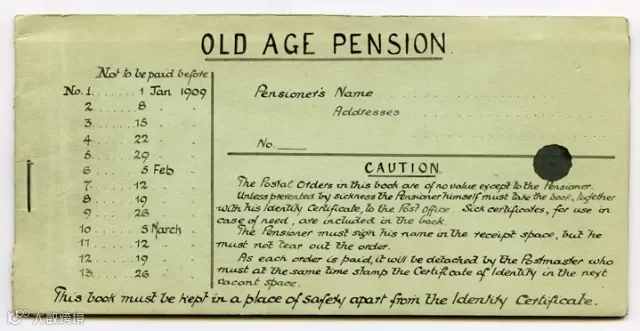 OLD AGE PENSION
Not to be paid before
No. 1 1 Jan 1909
2 8 " "
3 15 " "
4 22 " "
5 29 " "
6 5 Feb "
7 12 " "
8 19 " "
9 26 " "
10 5 March "
11 12 " "
12 19 " "
13 26 " "
Pensioner's Name
Addresses
No.
CAUTION
The Postal Orders in this book are of no value except to the Pensioner.
Unless prevented by sickness the Pensioner himself must take the book, together
with his Identity Certificate, to the Post Office. Sick certificates, for use in
case of need, are included in the book.
The Pensioner must sign his name in the receipt space, but he
must not tear out the order.
As each order is paid, it will be detached by the Postmaster who
must at the same time stamp the Certificate of Identity in the next
vacant space.
This book must be kept in a place of safety apart from the Identity Certificate.